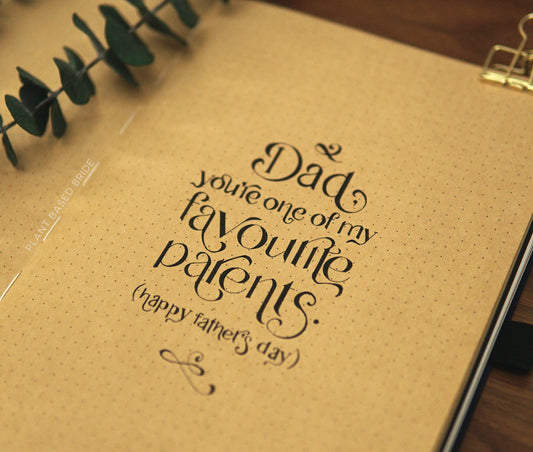 Dad,
you're one of my
favourite
parents.
(happy father's day)
PLANT BASED BRIDE